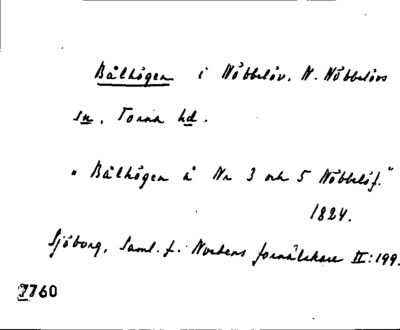 Bålhögen i Nöbbelöv, N. Nöbbelövs
sn, Torna hd.
"Bålhögen å Nr 3 och 5 Nöbbelöf."
1824.
Sjöborg, Saml. f. Nordens fornälskare II:199.
7760